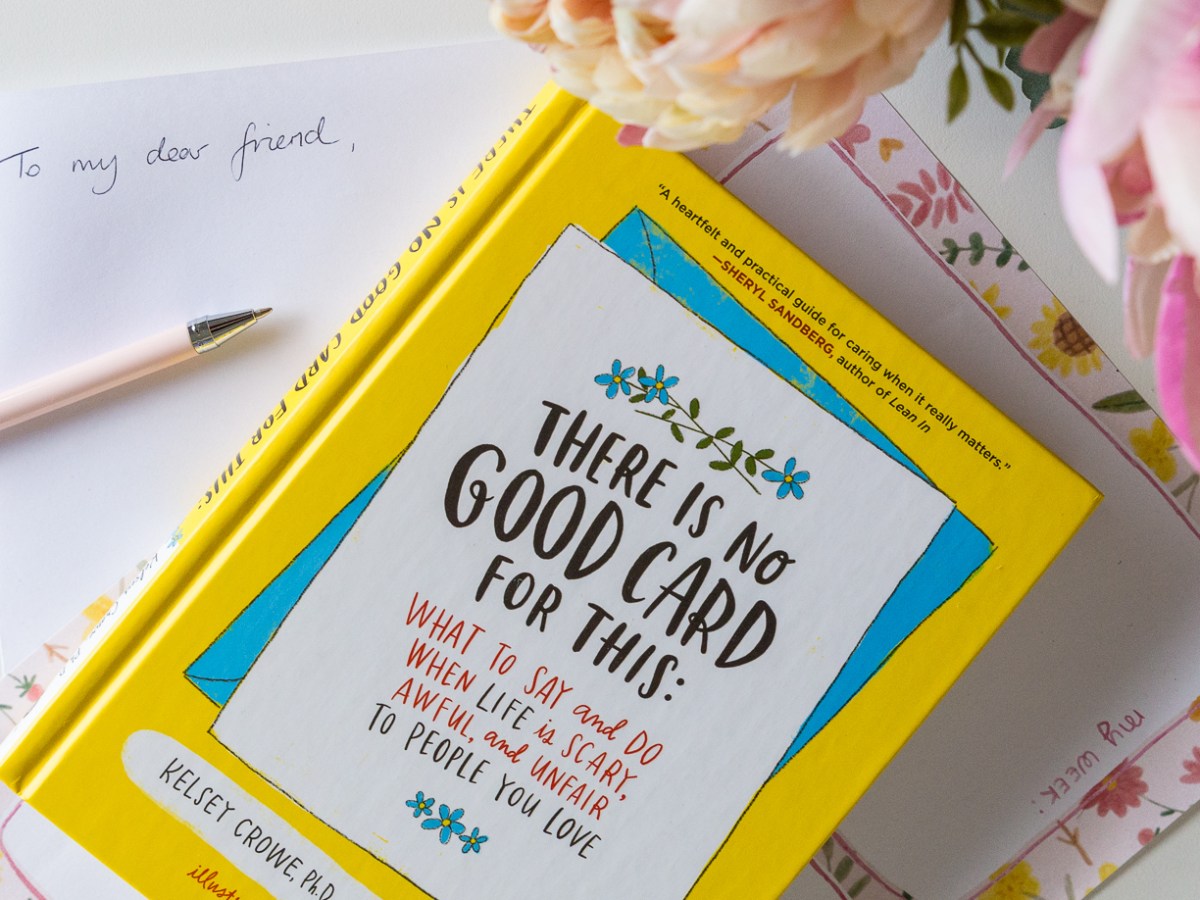 To my dear friend,
THERE IS NO GOOD CARD FOR THIS:
"A heartfelt and practical guide for caring when it really matters."
—SHERYL SANDBERG, author of Lean In
THERE IS NO
GOOD CARD
FOR THIS:
WHAT TO SAY and DO
WHEN LIFE is SCARY,
AWFUL, and UNFAIR
TO PEOPLE YOU LOVE
KELSEY CROWE, Ph.D.
my WEEK: